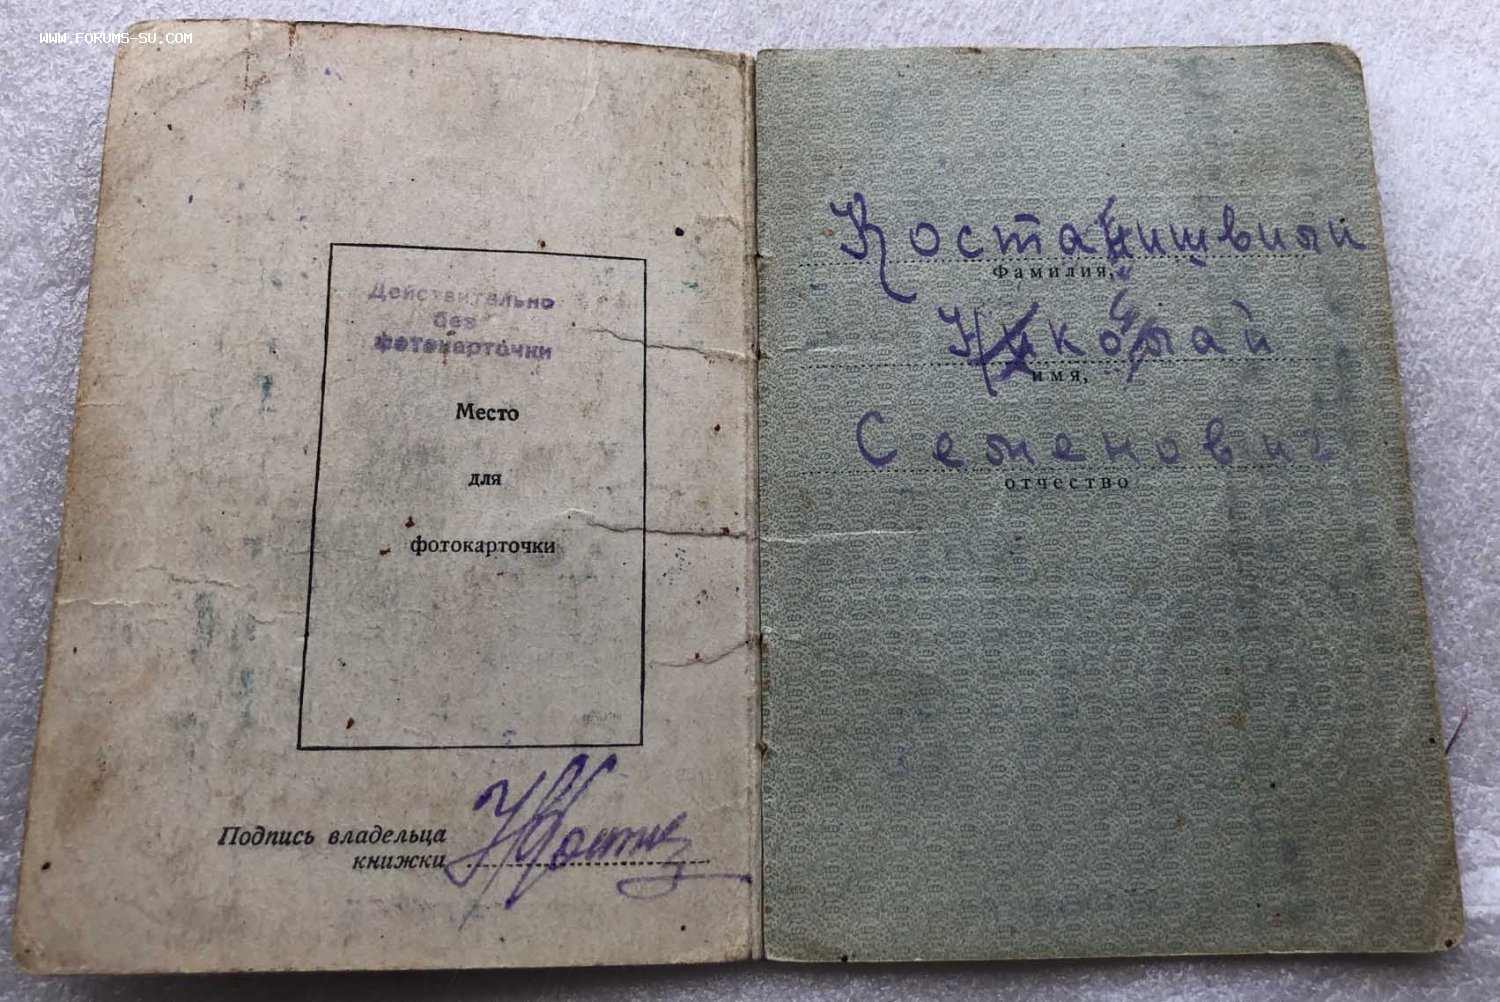 www.FORUMS-SU.COM
Действительно
без
фотокарточки
Место
для
фотокарточки
Подпись владельца
книжки
фамилия,
Николай
имя,
Семенович
отчество